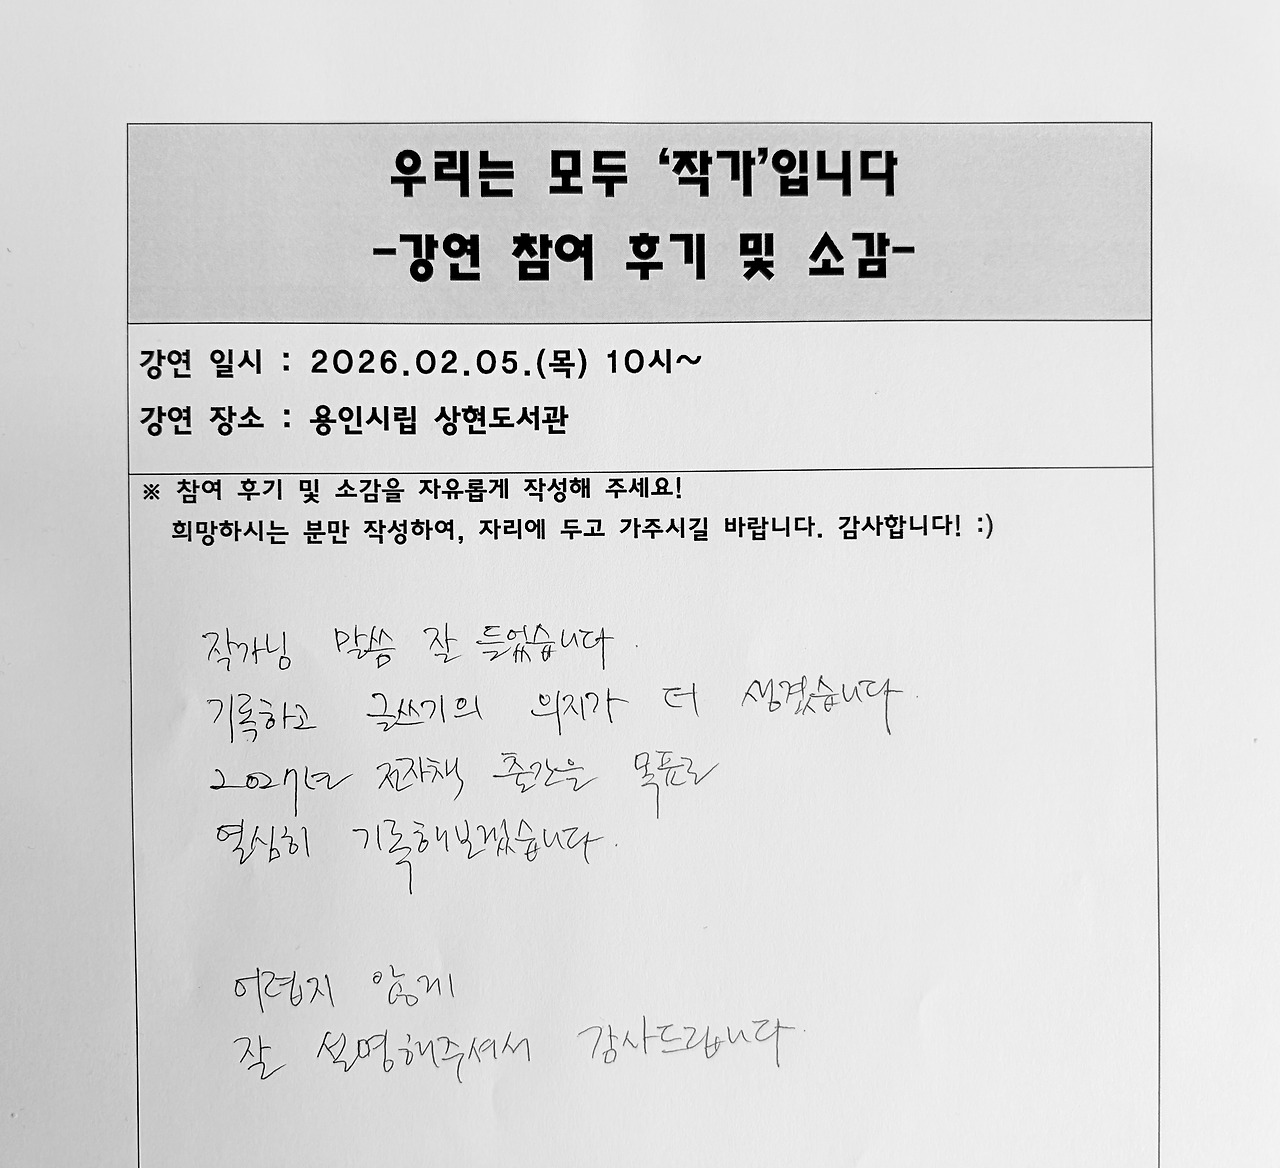 우리는 모두 ‘작가’입니다
-강연 참여 후기 및 소감-
강연 일시 : 2026.02.05.(목) 10시~
강연 장소 : 용인시립 상현도서관
※ 참여 후기 및 소감을 자유롭게 작성해 주세요!
희망하시는 분만 작성하여, 자리에 두고 가주시길 바랍니다. 감사합니다! :)
작가님 말씀 잘 들었습니다.
기록하고 글쓰기의 의지가 더 생겼습니다.
2027년 전자책 출간을 목표로
열심히 기록해보겠습니다.
어렵지 않게
잘 설명해주셔서 감사드립니다.